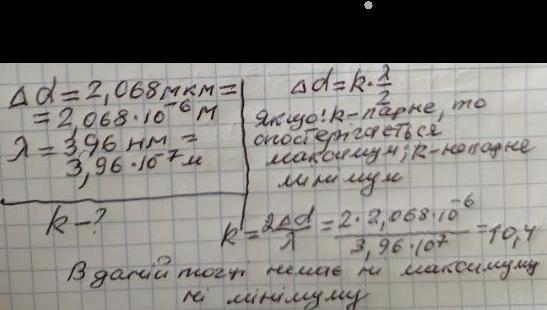 Δd = 2,068 мкм =
= 2,068·10⁻⁶ м
λ = 396 нм =
3,96·10⁻⁷ м
k - ?
Δd = k·λ/2
Якщо: k-парне, то
спостерігається
максимум; k-непарне
мінімум
k = 2Δd/λ = 2·2,068·10⁻⁶/3,96·10⁷ = 10,4
В даній точці немає ні максимуму
ні мінімуму